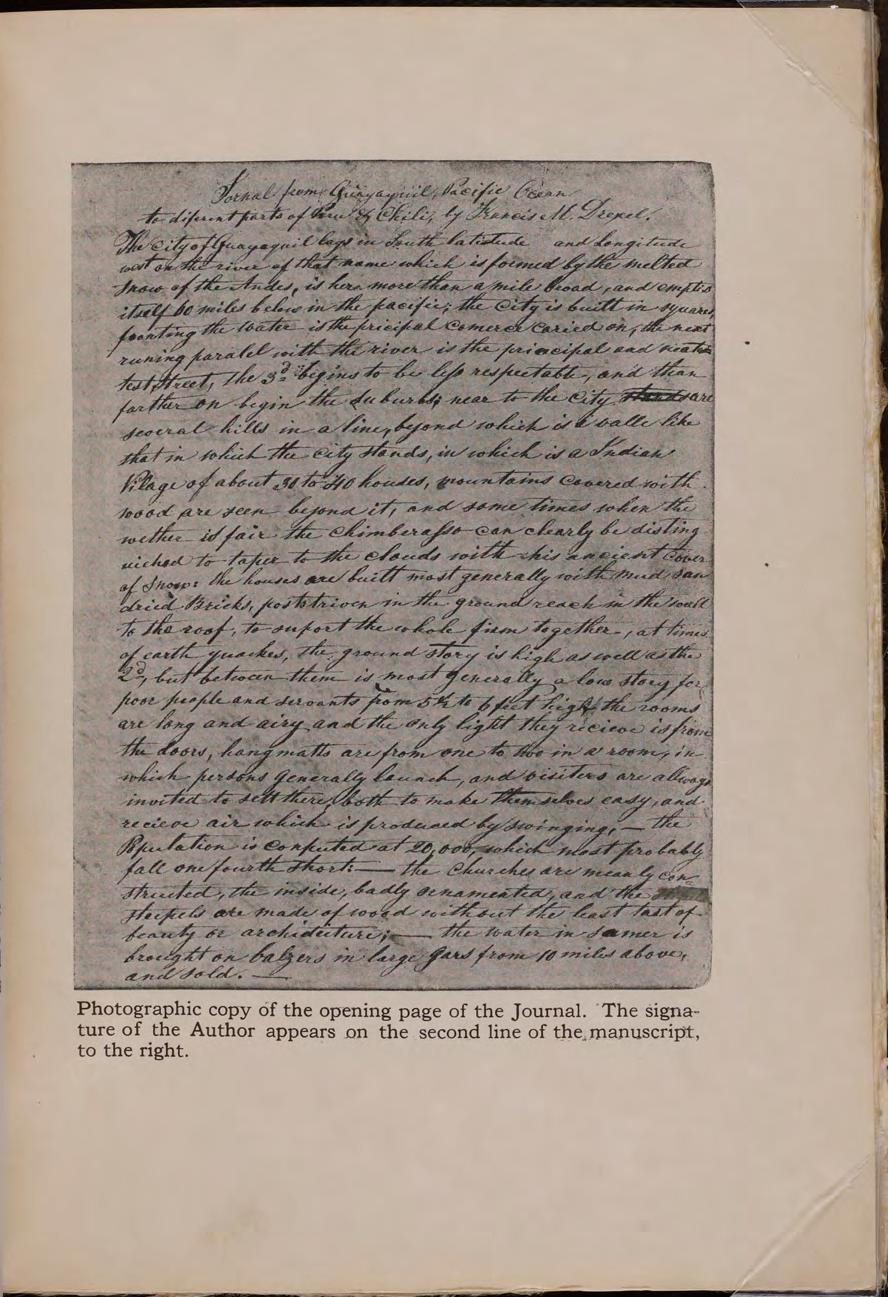 Jornal from Guayaquil, Pacific Ocean
to diferent parts of Peru & Chili, by Francis M. Drexel.
The City of Guayaquil lays in South latitude and Longitude
west on the river of that name which is formed by the melted
Snow of the Andes, is here more than a mile broad, and emptis
itself 60 miles below in the pacific; the City is built in squares,
fronting the water is the pricipal Comerce caried on, the next
runing paralel with the river is the principal and neatis
test street, the 3d begins to be less respectable, and than
farther on begin the suburbs; near to the City are
several hills in a line, beyond which is a valle like
that in which the city stands, in which is a Indian
Village of about 30 to 40 houses, mountains covered with
wood are seen beyond it, and some times when the
wether is fair the Chimberasso can clearly be disting
uiched to taper to the clouds with his ancient Cover
of Snow: the houses are built most generally with mud sun
dried Bricks, posts driven in the ground reach in the wall
to the roof, to suport the whole firm together, at times
of earth quackes, the ground story is high as well as the
2d, but between them is most generally a low story for
poor people and servants from 5½ to 6 feet high, the rooms
are long and airy and the only light they recieve is from
the doors, hangmatts are from one to two in a room, in
which persons generally launch, and visiters are allways
invited to sett there, both to make themselves easy, and
recieve air which is produced by swinging, — the
Population is computed at 20,000, which most probably
fall one fourth short — the Churches are meanly con-
structed, the inside, badly ornamented, and the
steepels are made of wood without the least tast of
beauty or archidecture; — the water in Sumer is
brought on balzers in large Jars from 10 miles above,
and sold. —
Photographic copy of the opening page of the Journal. The signa-
ture of the Author appears on the second line of the manuscript,
to the right.